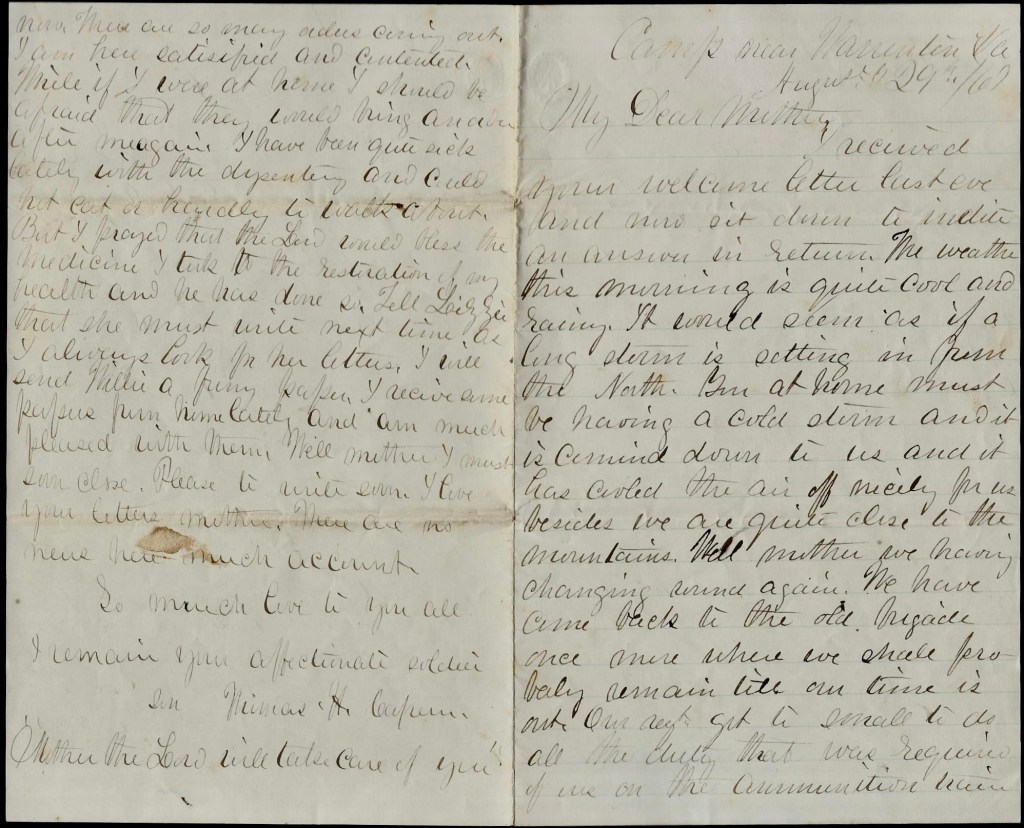 Camp near Warrenton Va
August 29th/63
My Dear Mother,
I received
your welcome letter last eve
and now sit down to indite
an answer in return. The weather
this morning is quite cool and
rainy. It would seem as if a
long storm is setting in from
the North. You at home must
be having a cold storm and it
is comind down to us and it
has cooled the air off nicely for us
besides we are quite close to the
mountains. Well mother we having
changing round again. We have
come back to the old brigade
once more where we shall pro-
baly remain till our time is
out. Our regt got to small to do
all the duty that was required
of us on the ammunition train
now. There are so many orders coming out.
I am here satisifid and contented.
While if I were at home I should be
afraid that they would bring another
after meagain. I have been quite sick
lately with the dysentery and could
not eat or hardly to walk about.
But I prayed that the Lord would bless the
medicine I tuk to the restoration of my
health and he has done so. Tell Lizzie
that she must write next time as
I always look for her letters. I will
send Willie a funy paper. I recive some
papers from home lately and am much
pleased with them. Well mother I must
soon close. Please to write soon. I love
your letters mother. There are no
news here much account.
So much love to you all
I remain your affectunate soldier
son Thomas H. Capern.
"Mother the Lord will take care of you"